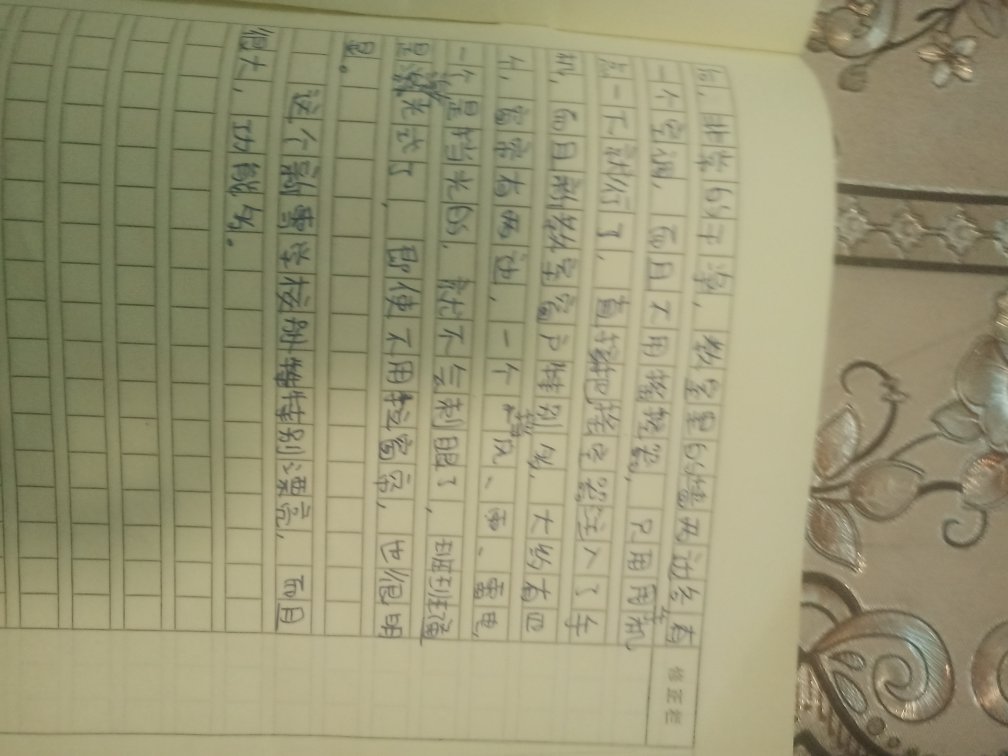 的，非常的干净，教室里的墙
一个空调，而且不用摇控器，只用用手机
点一下就行了，直接把摇空器注入了手
机，而且新教室窗户特别多，大约有四
个，窗帘有两边，一个挡风、雨、雷电，
一个是挡光的，就不会刺眼了，
光式了，即使不用拉窗帘，也很明
显。
这个新学校别墅特别漂亮，而且
很大，功能多。
修正栏